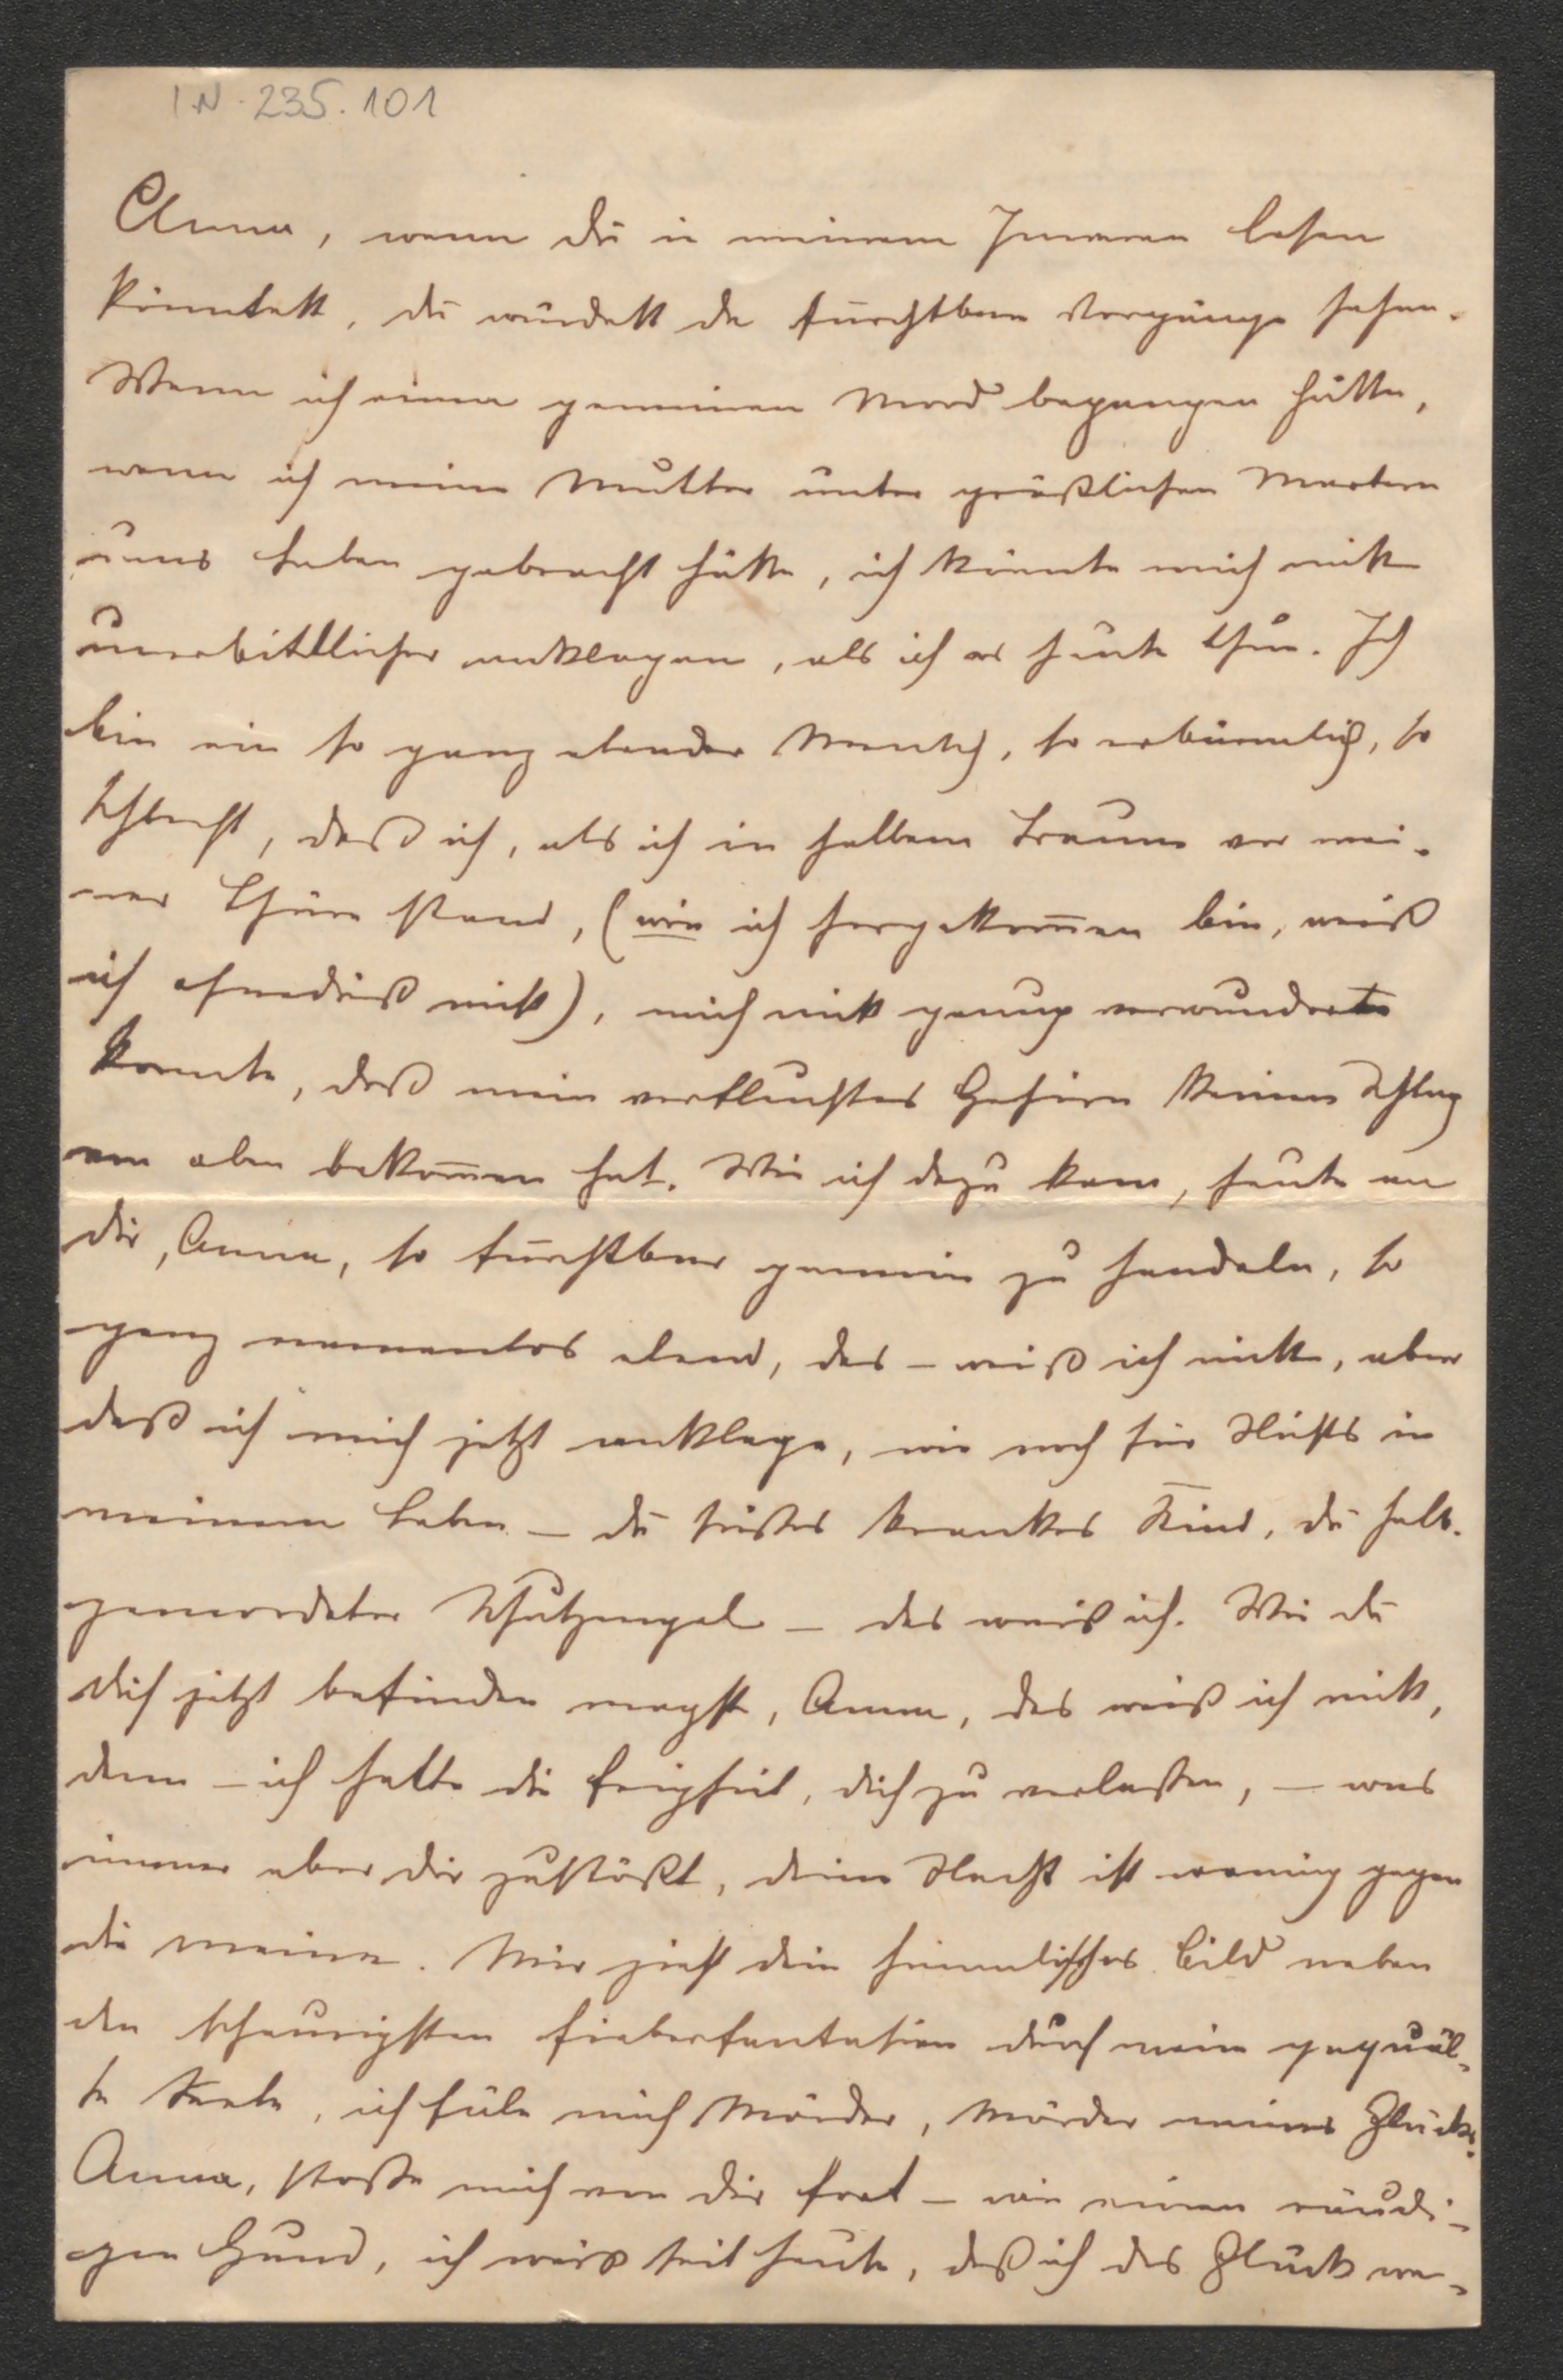 I.N. 235.101
Anna, wenn du in meinem Inneren lesen
könntest, du würdest da furchtbare Vorgänge sehen.
Wenn ich einen gemeinen Mord begangen hätte,
wenn ich meine Mutter unter gräßlichen Martern
ums Leben gebracht hätte, ich könnte mich nicht
unerbittlicher anklagen, als ich es heute thue. Ich
bin ein so ganz elender Mensch, so erbärmlich, so
schlecht, daß ich, als ich in halbem Traume vor mei-
ner Thüre stand, (wie ich hergekom̄en bin, weiß
ich ohnedieß nicht), mich nicht genug verwundern
konnte, daß mein verfluchtes Gehirn keinen Schlag
von oben bekom̄en hat. Wie ich dazu kam, heute an
dir, Anna, so furchtbar gemein zu handeln, so
ganz namenlos elend, das – weiß ich nicht, aber
daß ich mich jetzt anklage, wie noch für Nichts in
meinem Leben – du süßes krankes Kind, du halb-
gemordeter Schutzengel – das weiß ich. Wie du
dich jetzt befinden magst, Anna, das weiß ich nicht,
denn – ich hatte die Feigheit, dich zu verlaßen, – was
immer aber dir zustößt, deine Nacht ist wenig gegen
die meine. Mir zieht dein himmlisches Bild neben
den schaurigsten Fieberfantasien durch meine gequäl-
te Seele, ich füle mich Mörder, Mörder meines Glücks.
Anna, stoße mich von dir fort – wie einen räudi-
gen Hund, ich weiß seit heute, daß ich das Glück we-